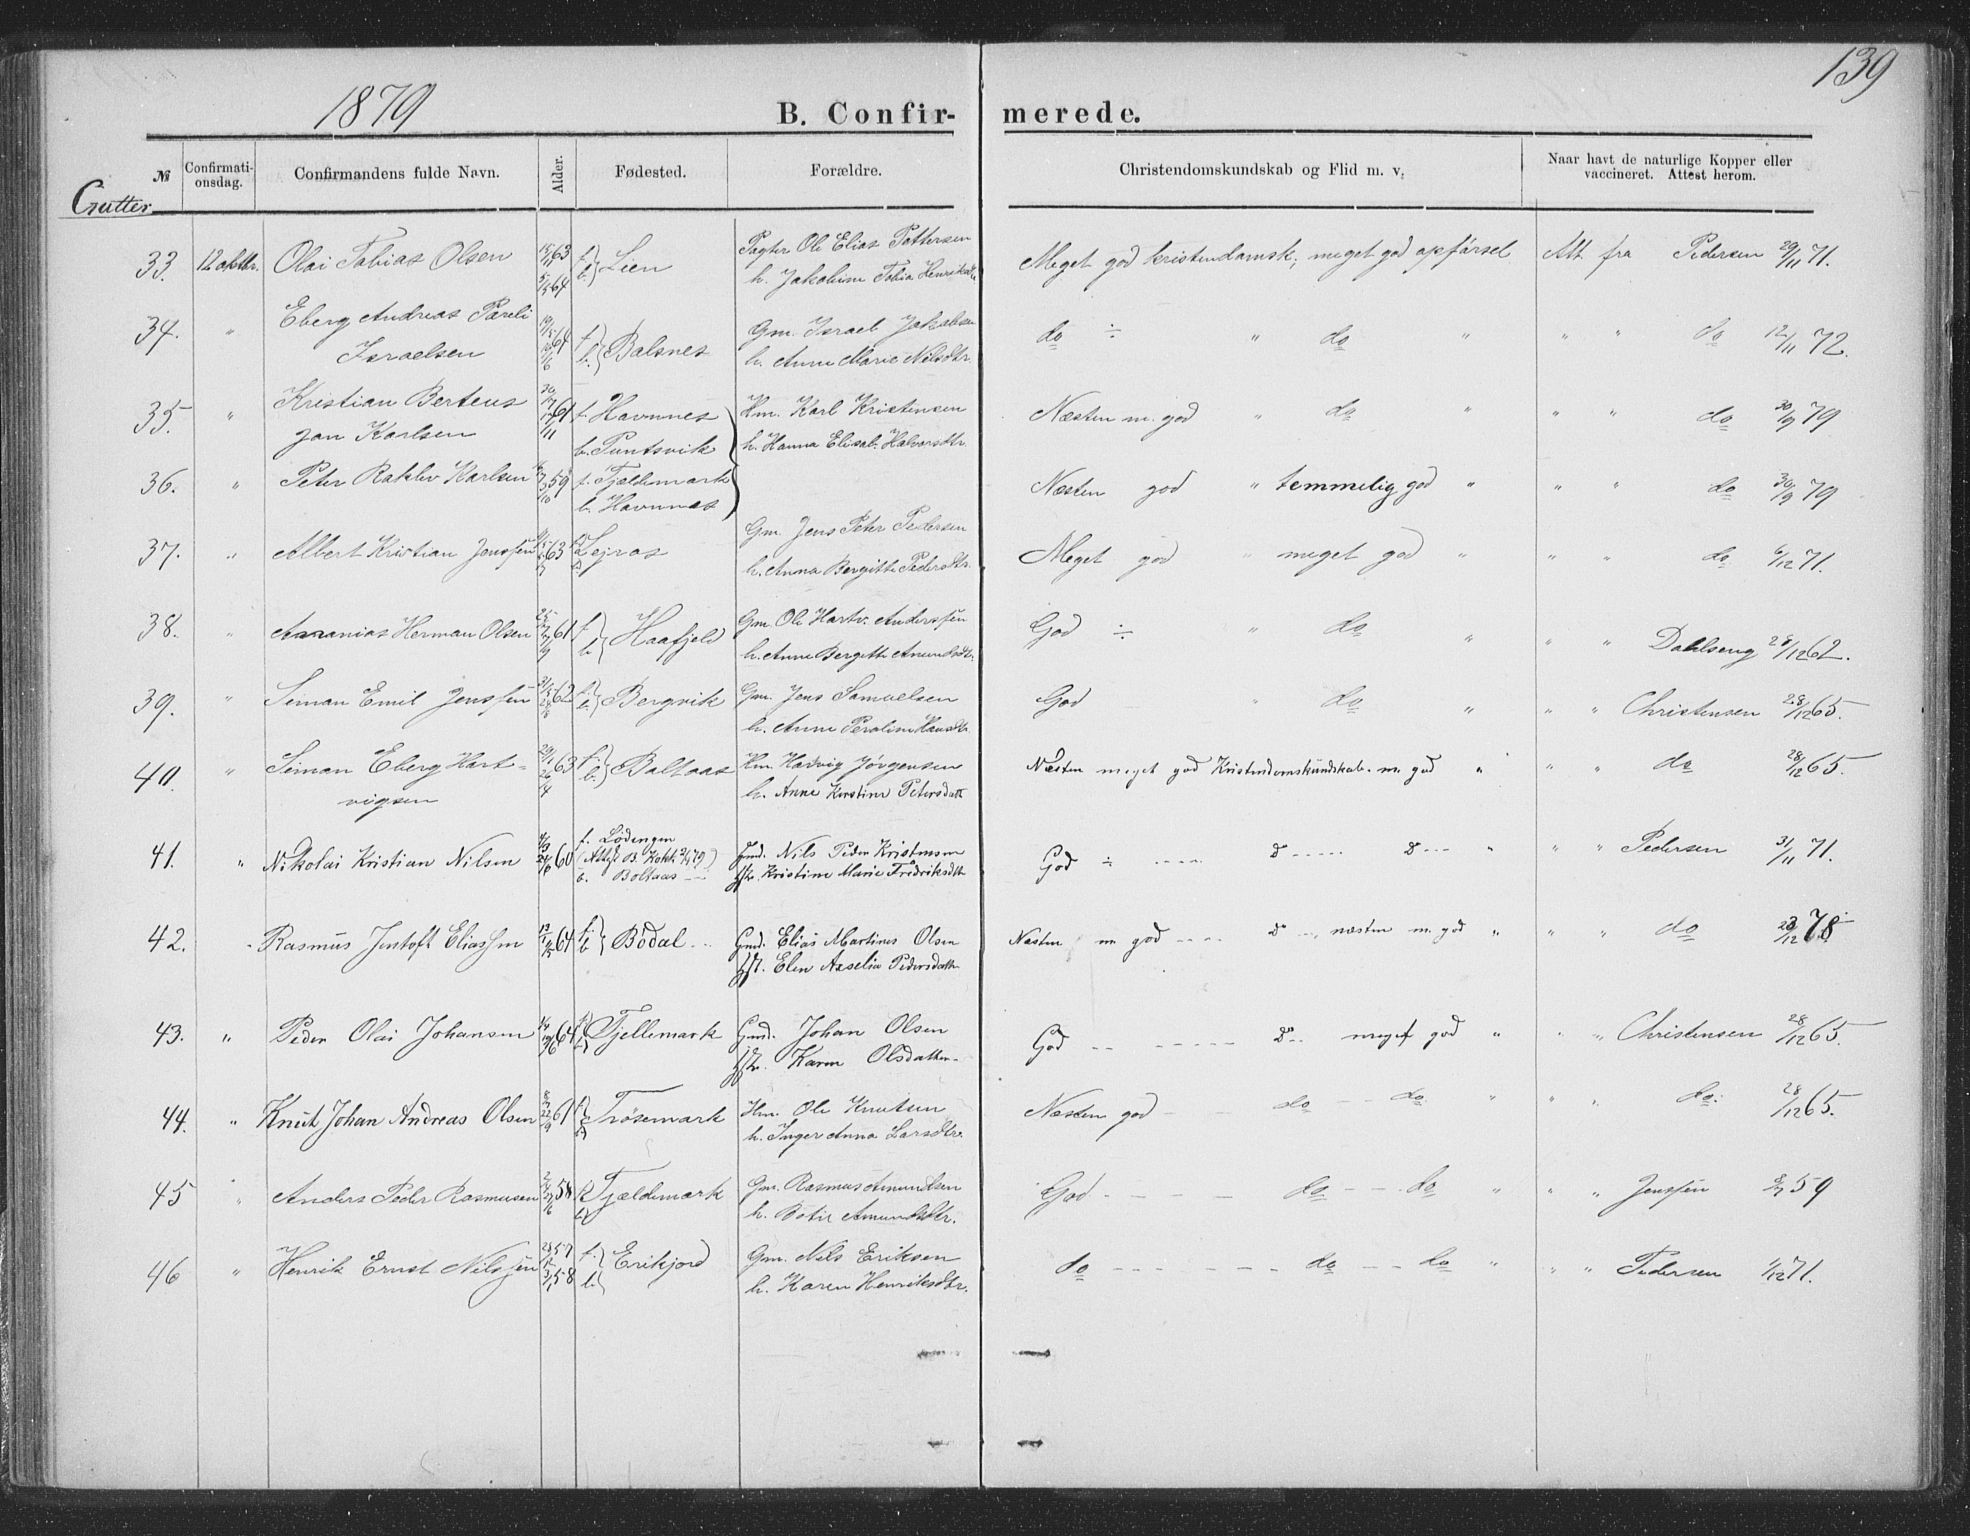 139
1879
B. Confir- merede.
№ Confirmationsdag. Confirmandens fulde Navn. Alder. Fødested. Forældre. Christendomskundskab og Flid m. v. Naar havt de naturlige Kopper eller vaccineret. Attest herom.
Gutter
33. 12 oktbr. Olai Tobias Olsen 63 f. Lien Pagter Ole Elias Pettersen Meget god kristendomsk; meget god opførsel Att. fra Pedersen 29/11 71.
5/5 64 b. h. Jakobine Tobia Henriksdtr
34. " Eberg Andreas Pareli 64 f. Balsnes Gm. Israel Jakobsen do ÷ " do " " " do 12/11 72.
Israelsen b. h. Anne Marie Nilsdtr.
35. " Kristian Berteus 61 f. Havnnes Hm. Karl Kristensen Næsten m. god " do " " " do 30/9 79
Jan Karlsen b. Puntsvik h. Hanna Elisab. Halvorsdtr.
36. " Peter Raklev Karlsen 59 f. Fjeldemark Næsten god " temmelig god " " " do 30/9 79
b. Havnnes
37. " Albert Kristian Jenssen 63 Lejros Gm. Jens Peter Pedersen Meget god " meget god " " " do 6/12 71.
h. Anna Bergitte Pedersdtr.
38. " Ananias Herman Olsen 61 f. b. Haafjeld Gm. Ole Hartv. Anderssen God ÷ " do " " " Dahlseng 28/12 62.
h. Anne Bergitte Amundsdtr.
39. " Simon Emil Jenssen 62 f. b. Bergvik Gm. Jens Samuelsen God " do " " " Christensen 28/12 65.
h. Anne Peroline Hansdtr
40. " Simon Eberg Hart- 63 f. b. Boltaas Hm. Hartvig Jørgensen Næsten meget god Kristendomskundskab. m. god " " " do 28/12 65.
vigsen h. Anne Kirstine Petersdatt
41. " Nikolai Kristian Nilsen 60 f. Lødingen Gmd. Nils Peder Kristensen God ÷ do do " " " Pedersen 31/11 71.
(Attest B. Kokk 79)
b. Boltaas Hstr. Kristine Marie Fredriksdtr
42. " Rasmus Jentoft Eliassen 64 f. b. Bodal Gmd. Elias Martinus Olsen Næsten m. god do næsten m. god " " " do 78.
Hst. Elen Axselia Pedersdatter
43. " Peder Olai Johansen 64 Fjellemark Gmd. Johan Olsen God do meget god " " " Christensen 28/12 65.
Hstr. Karen Olsdatter
44. " Knut Johan Andreas Olsen 61 Trøsemark Hm. Ole Knutsen Næsten god do do " " " do. 28/12 65.
h. Inger Anna Larsdtr.
45 " Anders Peder Rasmusen 58 Fjeldemark Gm. Rasmus Amundsen God do do " " " Jenssen 59
h. Botil Amundsdtr.
46 " Henrik Ernst Nilssen 57 f. Erikjord Gm. Nils Eriksen do do do " " " Pedersen 1/12 71.
3/1 58 b. h. Karen Henriksdtr.